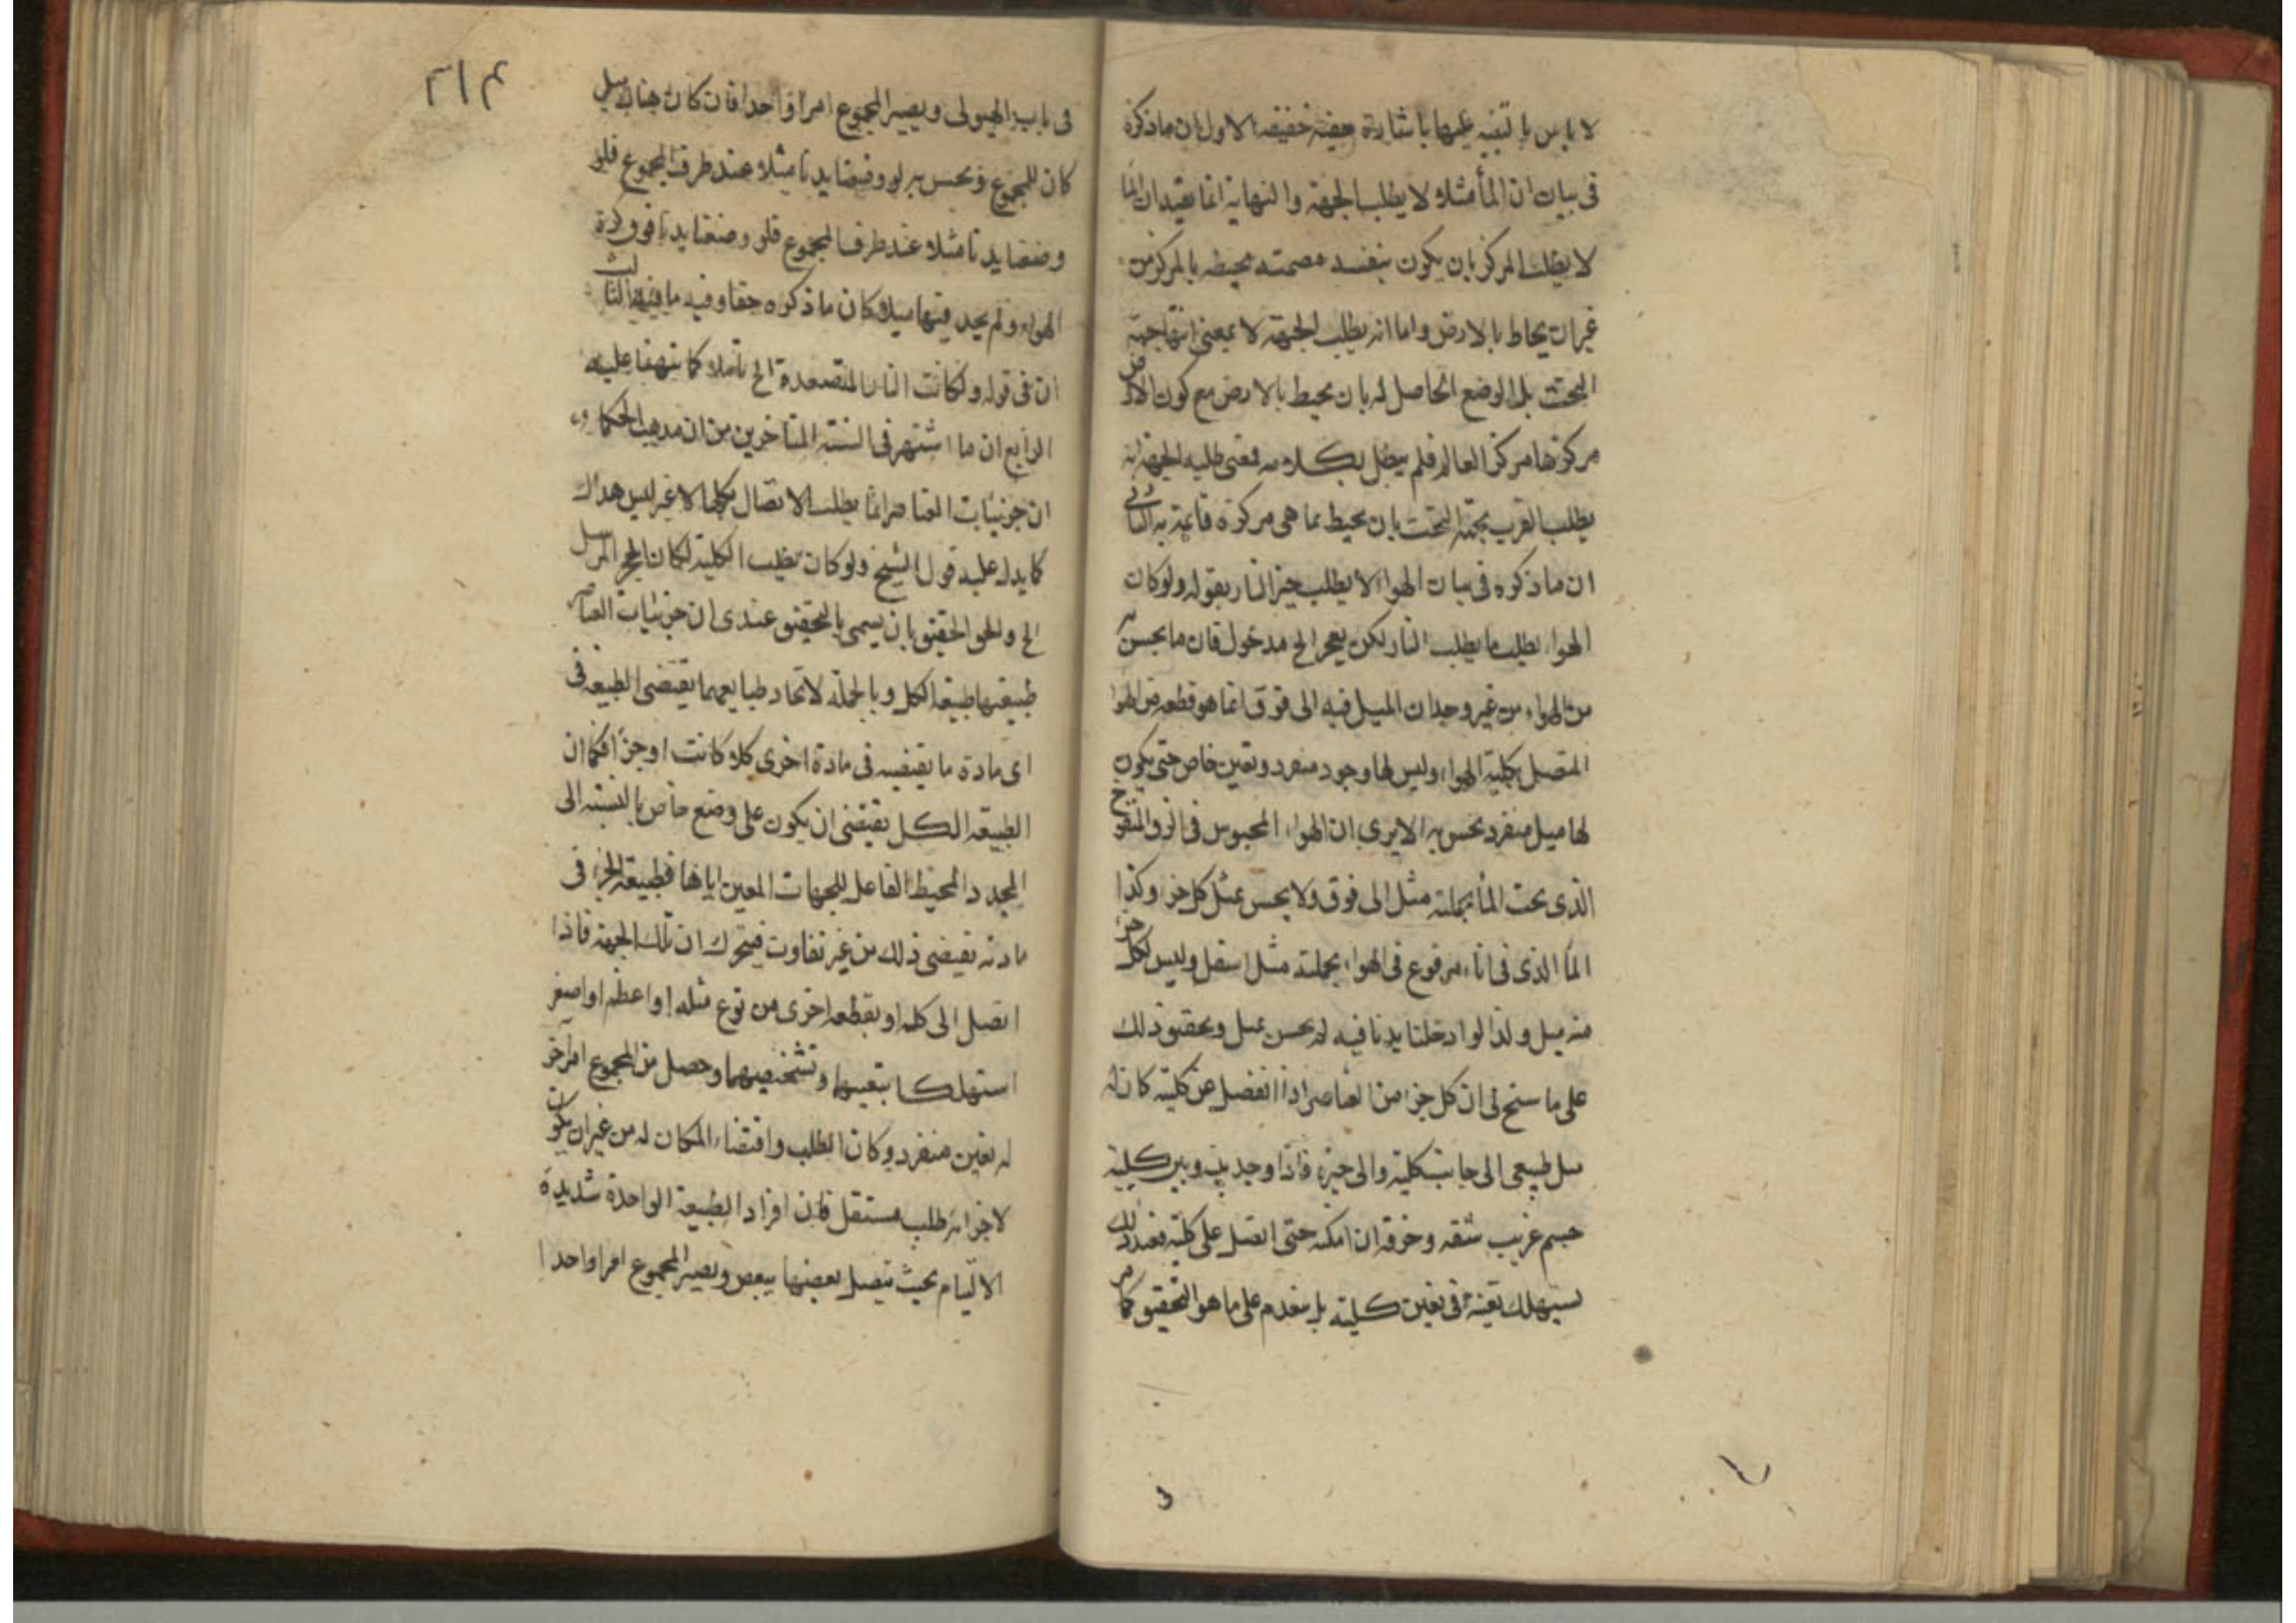 لا باس بالتنبيه عليها باشارة خفيفه الاول ان ما ذكره
فى بيان ان الماء مثلا لا يطلب الجهة والنهاية انما يفيد ان الماء
لا يطلب المركز بان يكون بنفسه محيطه بالمركز من
غير ان يحاط بالارض واما انه يطلب الجهة لا بمعنى انها جهة
التحت بل الوضع الحاصل له بان يحيط بالارض مع كون الارض
مركزها مركز العالم فلم يبطل بكلامه فمعنى طلبه الجهة انه
يطلب القرب بجهة التحت بان يحيط بما هى مركزة قايمة به الثانى
ان ما ذكره فى بيان الهواء لا يطلب حيز النار بقوله ولو كان
الهواء يطلب ما يطلب النار لكن يعجز الخ مدخول فان ما يحس به
من الهواء من غير وجدان الميل فيه الى فوق انما هو قطعه من الهواء
المتصل بكلية الهواء وليس لها وجود منفرد وتعين خاص حتى يكون
لها ميل منفرد يحس به الا يرى ان الهواء المحبوس فى الزق المنفوخ
الذى تحت الماء بجملته مثل الى فوق ولا يحس بمثل كل جزء وكذا
الماء الذى فى اناء مرفوع فى الهواء بجملته مثل اسفل وليس لكل جزء
منه ميل ولذا لو ادخلنا يدنا فيه لم يحس بميل وتحقيق ذلك
على ما سنح لى ان كل جزء من العناصر اذا انفصل عن كلية كان له
ميل طبيعى الى جانب كلية والى حيزه فاذا وجد بينه وبين كلية
جسم غريب شقه وخرقه ان امكنه حتى اتصل على كلية فعند ذلك
يستهلك تعينه فى تعين كلية بل ينعدم على ما هو التحقيق كما مر
٢١٤
فى باب الهيولى ويصير المجموع امرا واحدا فان كان هناك ميل
كان للمجموع ويحس به لو وضعنا يدنا مثلا عند طرف المجموع فلو
وضعنا يدنا مثلا عند طرف المجموع فلو وضعنا يدنا فوق كرة
الهواء ولم يجد فيها ميلا كان ما ذكره حقا وفيه ما فيه الثالث
ان فى قوله ولكانت النار المتصعدة الخ تاملا كما نبهنا عليه
الرابع ان ما اشتهر فى السنة المتاخرين من ان مذهب الحكماء
ان جزئيات العناصر انما يطلب الاتصال بكلها لا غير ليس هذاك
كما يدل عليه قول الشيخ ولو كان يطلب الكلية لكان الحجر المرسل
الخ والحق الحقيق بان يسمى بالتحقيق عندى ان جزئيات العناصر
طبيعتها طبيعة الكل وبالجملة لاتحاد طبايعهما يقتضى الطبيعه فى
اى مادة ما يقتضيه فى مادة اخرى كلا كانت او جزءا فكما ان
الطبيعه الكل تقتضى ان يكون على وضع خاص بالنسبة الى
المحدد المحيط الفاعل للجهات المعين اياها فطبيعة الجزء فى
مادته تقيضى ذلك من غير تفاوت فيتحرك ان تلك الجهة فاذا
اتصل الى كله او بقطعه اخرى من نوع مثله او اعظم او اصغر
استهلكا بتعينها وتشخصيهما وحصل من المجموع امر آخر
له تعين منفرد وكان الطلب واقتضاء المكان له من غير ان يكون
لاجزائه طلب مستقل فان افراد الطبيعة الواحدة شديدة
الالتيام بحيث يتصل بعضها ببعض ويصير المجموع امرا واحدا